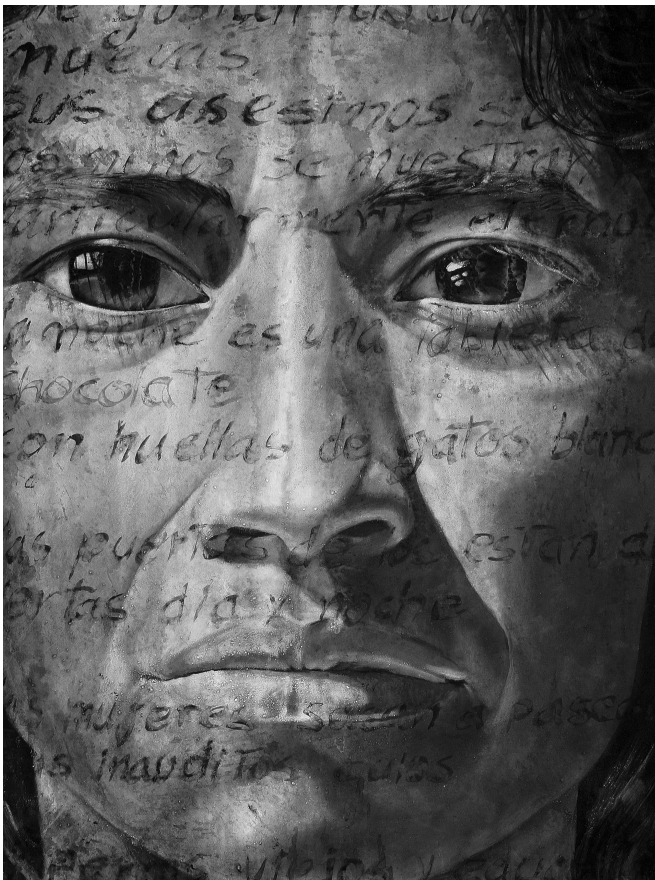 gustan las
nuevas
sus asesinos su
os niños se muestran
articularmente eternos
a noche es una tableta de
chocolate
con huellas de gatos blanc
as puertas de los estan
ertas dia y noche
as mujeres sacan a paseo
os inauditos
viejos y